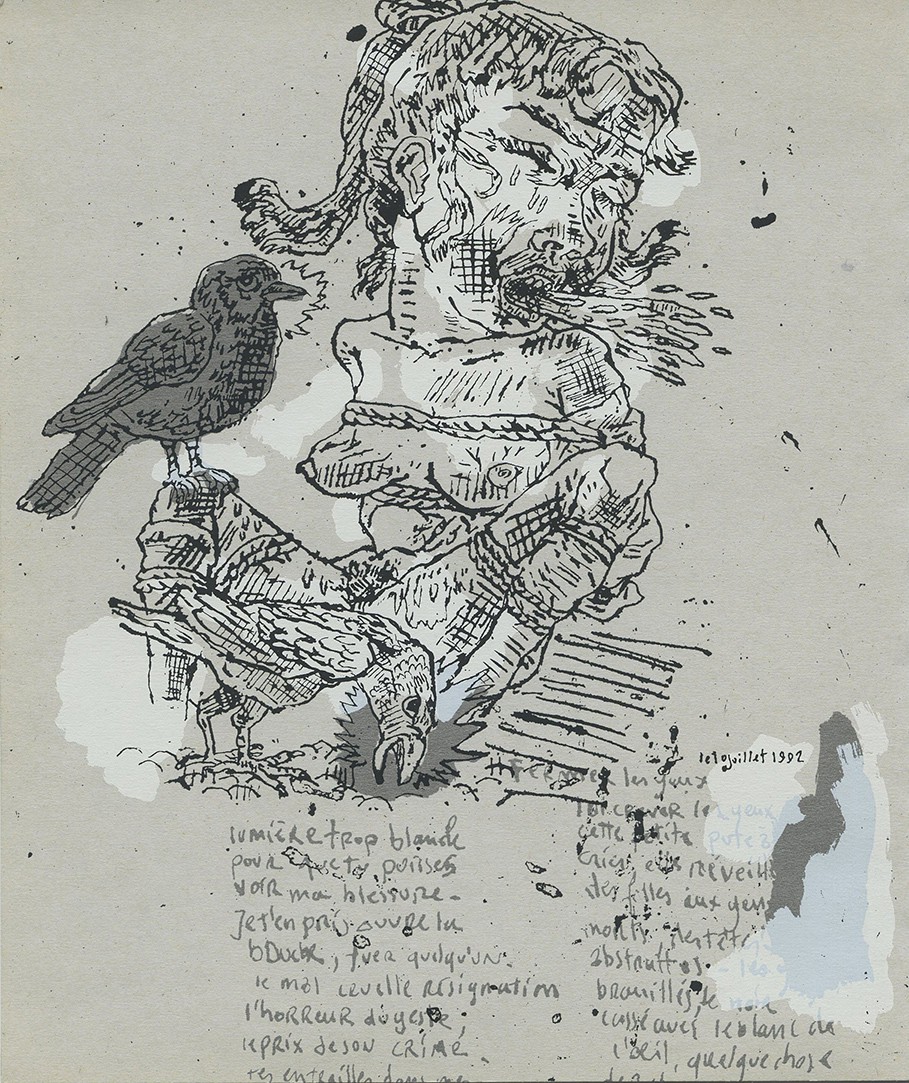 le 10 juillet 1992
lumière trop blanche
pour que tu puisses
voir ma blessure -
Je t'en prie ouvre la
bouche, tuer quelqu'un.
le mot cruelle résignation
l'horreur du geste,
le prix de son crime.
tes entrailles dans
Fermer les yeux
lui crever les yeux
cette petite pute à
crier, elle réveille
des filles aux yeux
morts, des têtes
abstraites - les
brouillés, le noir
cassé avec le blanc de
l'œil, quelque chose